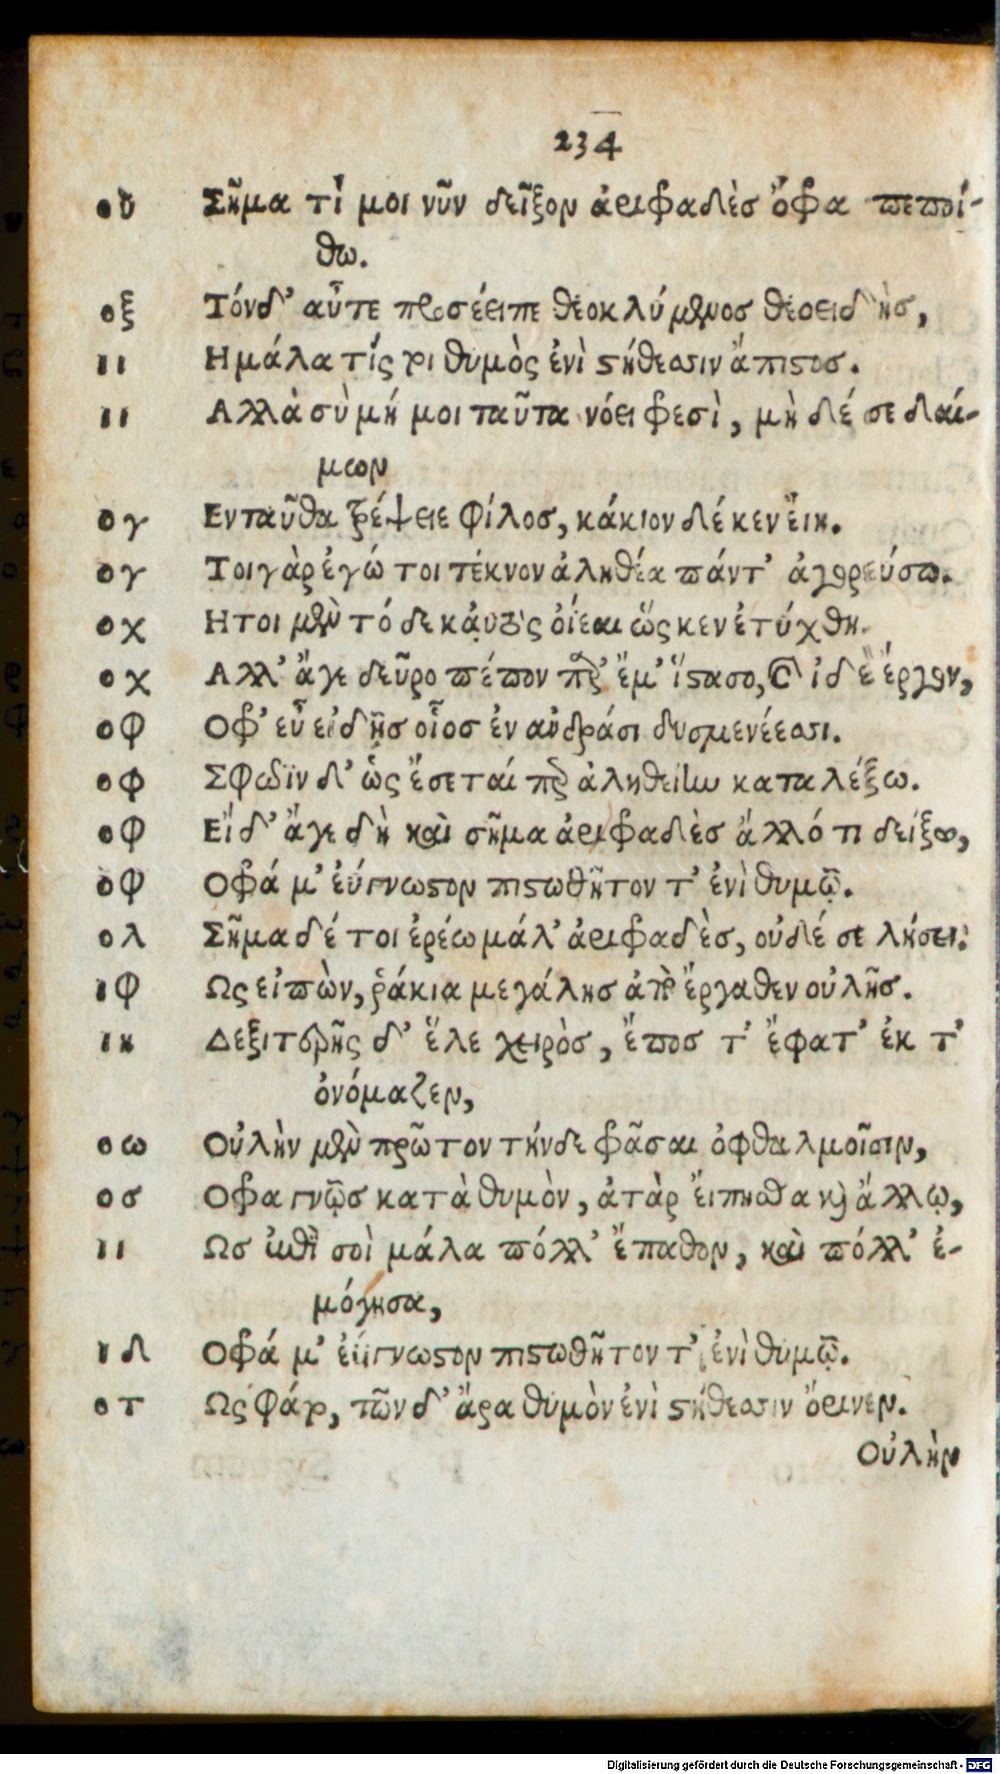 234
ου Σῆμα τί μοι νῦν δεῖξον ἀριφαδὲσ ὄφρα πεποί-
θω.
οξ Τόνδ' αὖτε προσέειπε θεοκλύμενοσ θεοειδὴσ,
ιι Η μάλα τίς ρι θυμὸς ἐνὶ στήθεσσιν ἄπιστοσ.
ιι Αλλὰ σὺ μή μοι ταῦτα νόει φρεσὶ, μὴ δέ σε δαί-
μων
ογ Ενταῦθα τρέψειε φίλοσ, κάκιον δέ κεν εἴη.
ογ Τοιγὰρ ἐγώ τοι τέκνον ἀληθέα πάντ' ἀγορεύσω.
οχ Ητοι μὲν τό δε κᾀυτὸς ὀίεαι ὥς κεν ἐτύχθη.
οχ Αλλ' ἄγε δεῦρο πέπον παρ' ἔμ' ἵστασο, καὶ ἰδὲ ἔργον,
οφ Οφρ' εὖ εἰδῇσ οἷοσ ἐν ἀνδράσι δυσμενέεσσι.
οφ Σφῶϊν δ' ὡς ἔσεταί περ ἀληθείην καταλέξω.
οφ Εἴ δ' ἄγε δὴ καὶ σῆμα ἀριφραδὲσ ἄλλό τι δείξω,
οφ Οφρά μ' ἐύγνωστον πιστωθῆτον τ' ἐνὶ θυμῷ.
ολ Σῆμα δέ τοι ἐρέω μάλ' ἀριφραδὲσ, οὐδέ σε λήσει.
ιφ Ως εἰπὼν, ῥάκια μεγάλησ ἀπο ἔργαθεν οὐλῆσ.
ιη Δεξιτερῆς δ' ἕλε χειρὸσ, ἔποσ τ' ἔφατ' ἐκ τ'
ὀνόμαζεν,
οω Οὐλὴν μὲν πρῶτον τήνδε φρᾶσαι ὀφθαλμοῖσιν,
οσ Οφρα γνῷσ κατὰ θυμὸν, ἀτὰρ εἴπησθα καὶ ἄλλῳ,
ιι Ωσ ἐπὶ σοὶ μάλα πόλλ' ἔπαθον, καὶ πόλλ' ἐ-
μόγησα,
ιδ Οφρά μ' ἐύγνωστον πιστωθῆτον τ' ἐνὶ θυμῷ.
οτ Ως φάρ, τῶν δ' ἄρα θυμὸν ἐνὶ στήθεσσιν ὄρινεν.
Οὐλὴν
Digitalisierung gefördert durch die Deutsche Forschungsgemeinschaft - DFG